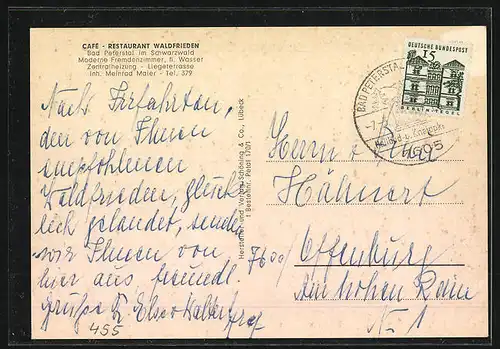 CAFÉ - RESTAURANT WALDFRIEDEN
Bad Peterstal im Schwarzwald
Moderne Fremdenzimmer, fl. Wasser
Zentralheizung - Liegeterrasse
Inh. Meinrad Maier - Tel. 379
Nach Irrfahrten,
den von Ihnen
empfohlenen
Waldfrieden, glück
lich gelandet, senden
wir Ihnen von
hier aus, freundl.
Grüße
455
Hersteller und Verlag Schöning & Co., Lübeck
Bestellnr. Petal 170/1
DEUTSCHE BUNDESPOST
15
BERLIN-TEGEL
BAD PETERSTAL
7605
Herrn u. Frau
Hähnert
7600/ Offenburg
Am hohen Rain
Nr. 1